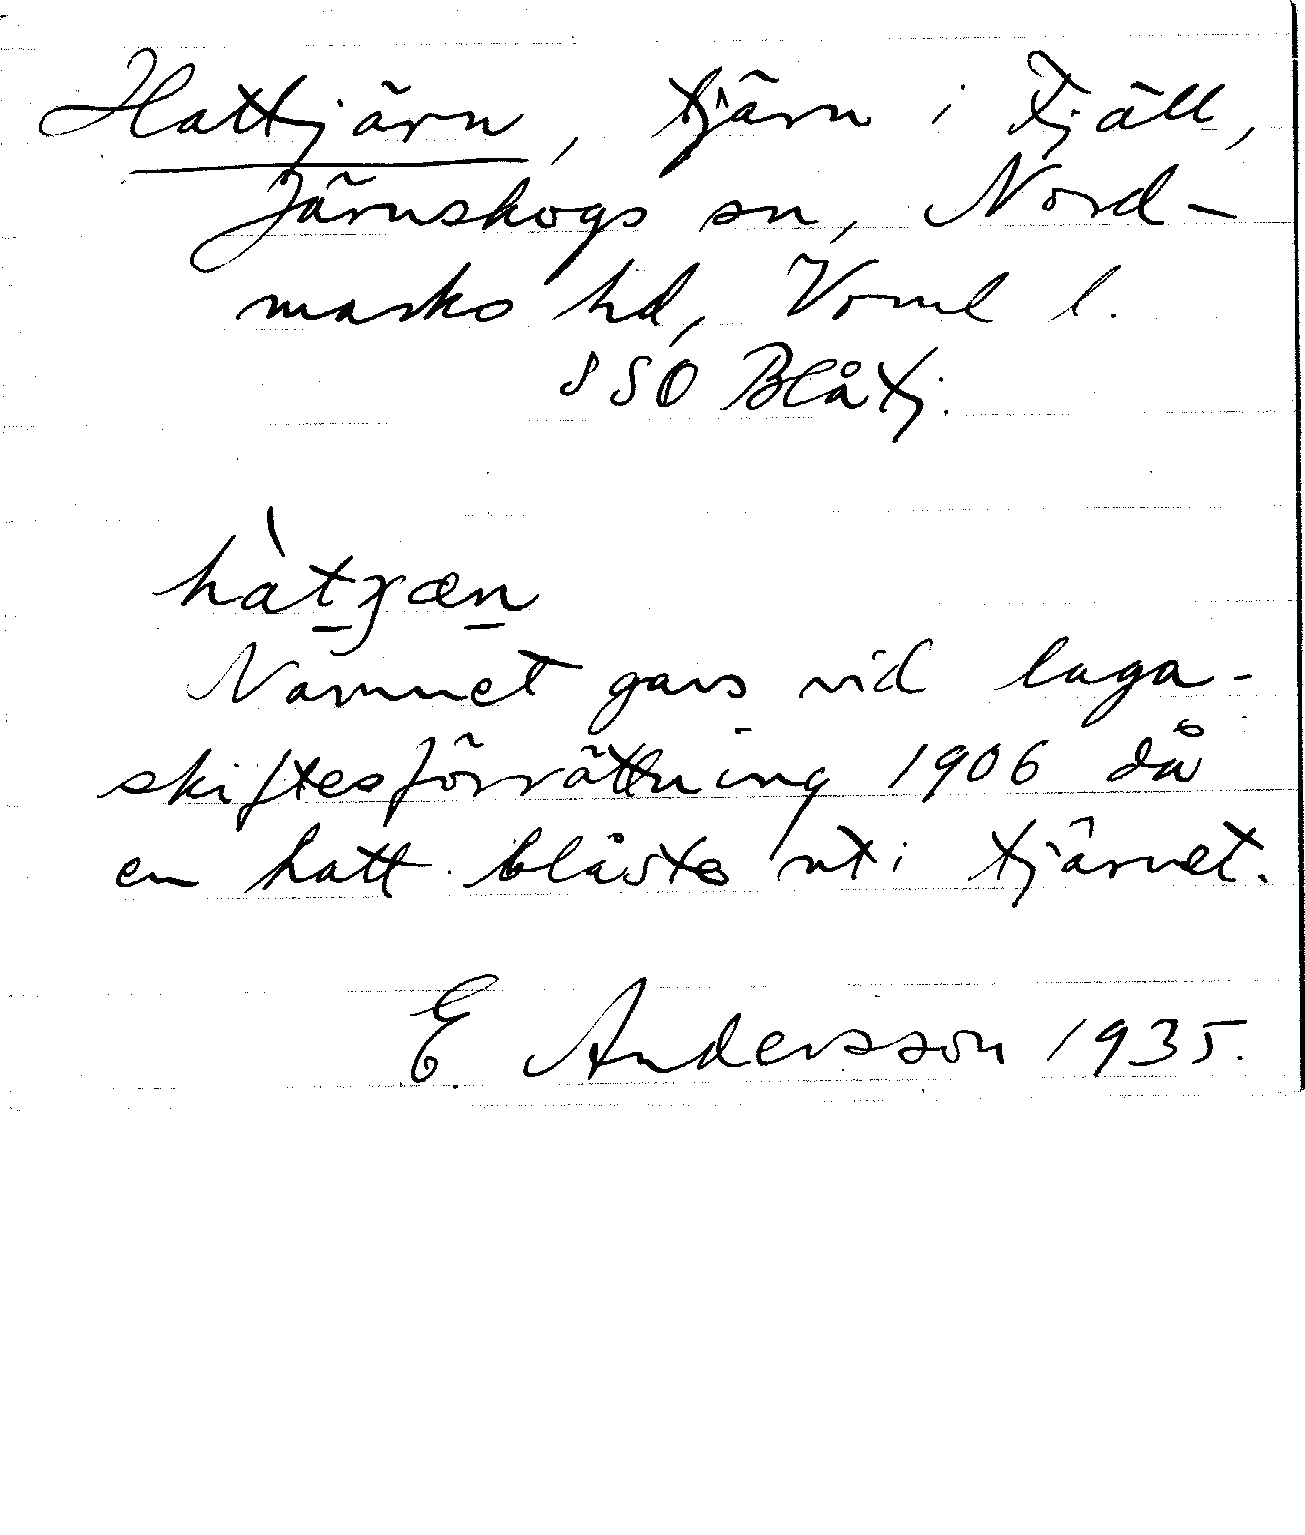 Hattjärn, tjärn i Fjäll,
Järnskogs sn, Nord-
marks hd, Vrml l.
SSO Blåtj.
hàtɣæn
Namnet gavs vid laga-
skiftesförrättning 1906 då
en hatt blåste uti tjärnet.
E Andersson 1935.